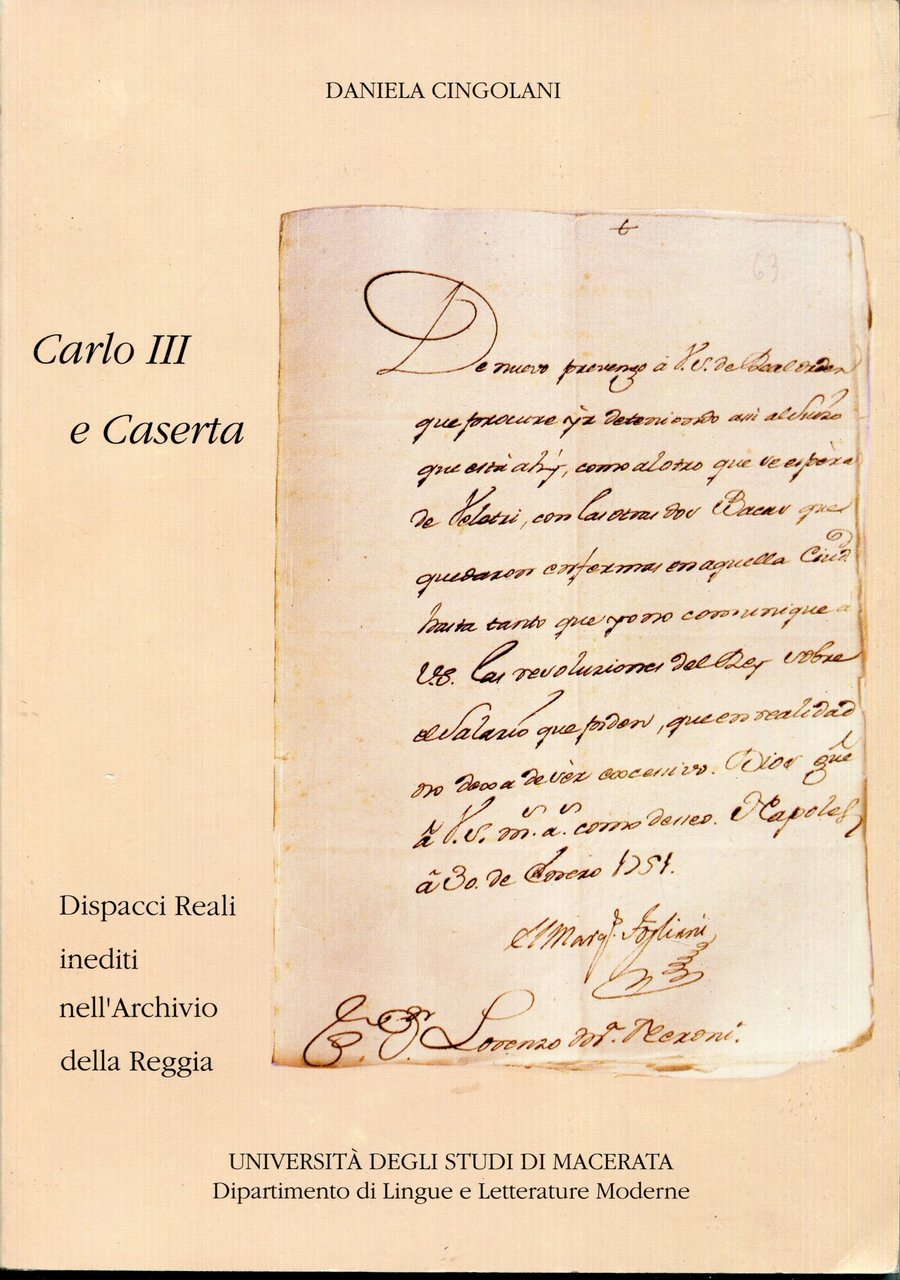 DANIELA CINGOLANI
Carlo III
e Caserta
63
De nuevo prevengo à V.S. de Real orden
que procure yr deteniendo asi al Suizo
que està ahÿ, como al otro que se espèra
de Veletri, con las otras dos Bacas que
quedaron enfermas en aquella Ciud.
hasta tanto que yo no comunique a
V.S. las revoluziones del Rey sobre
el Salario que piden, que en realidad
no dexa de sèr excessivo. Dios gũe
à V.S. m.s a.s como desseo. Napoles
à 30. de Enero 1751.
El Marq.s Fogliani
Lorenzo M.a Neroni.
Dispacci Reali
inediti
nell'Archivio
della Reggia
UNIVERSITÀ DEGLI STUDI DI MACERATA
Dipartimento di Lingue e Letterature Moderne